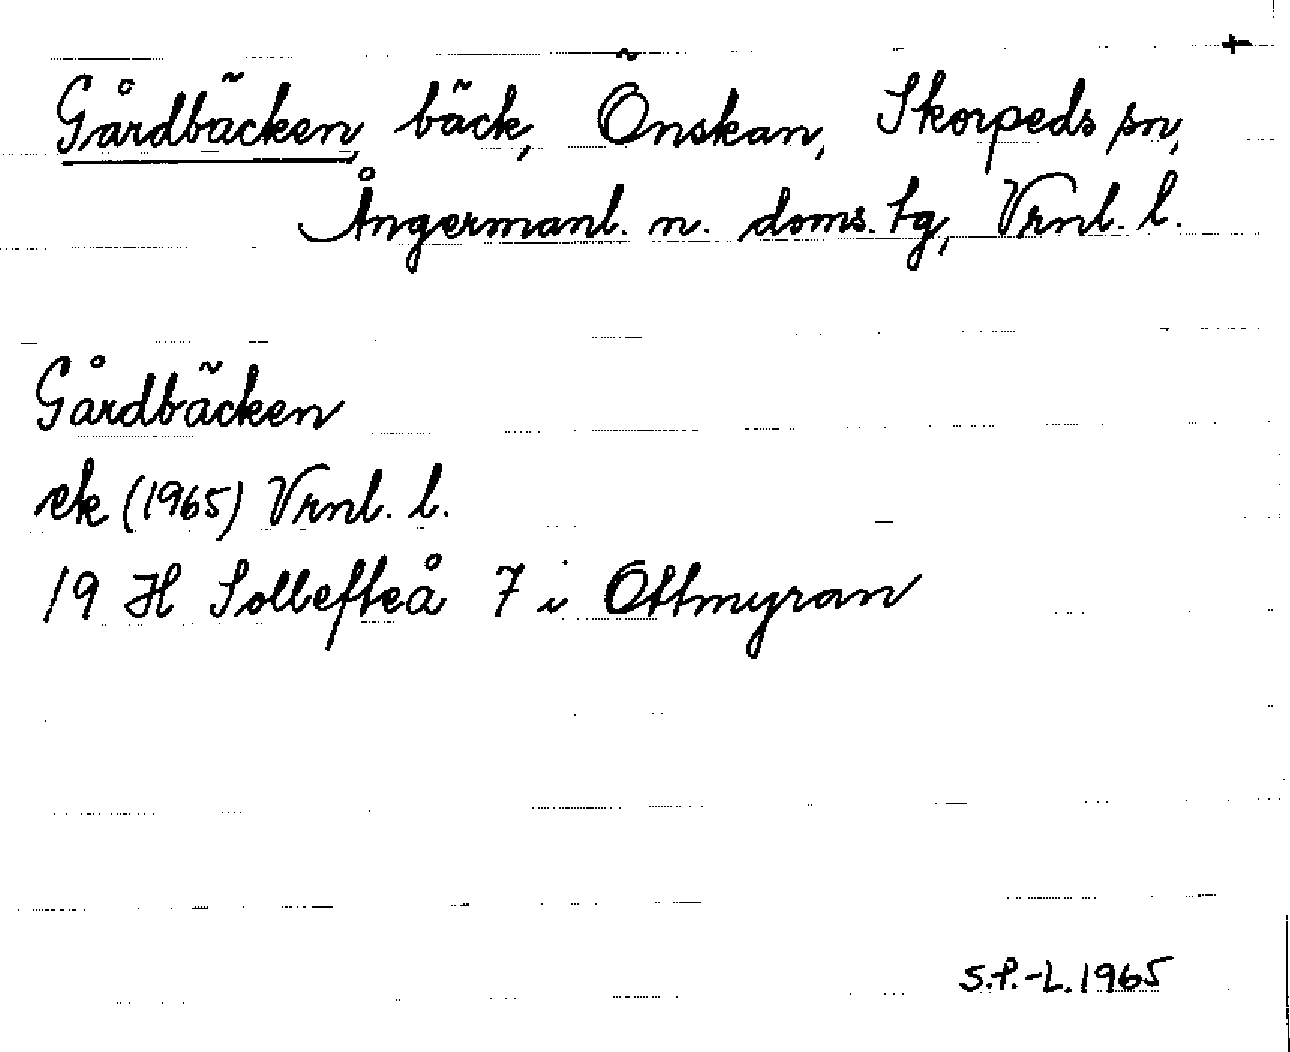 +
Gårdbäcken, bäck, Önskan, Skorpeds sn,
Ångermanl. n. doms. tg, Vrnl. l.
Gårdbäcken
ek (1965) Vrnl. l.
19 H Sollefteå 7 i Ottmyran
S.P.-L. 1965